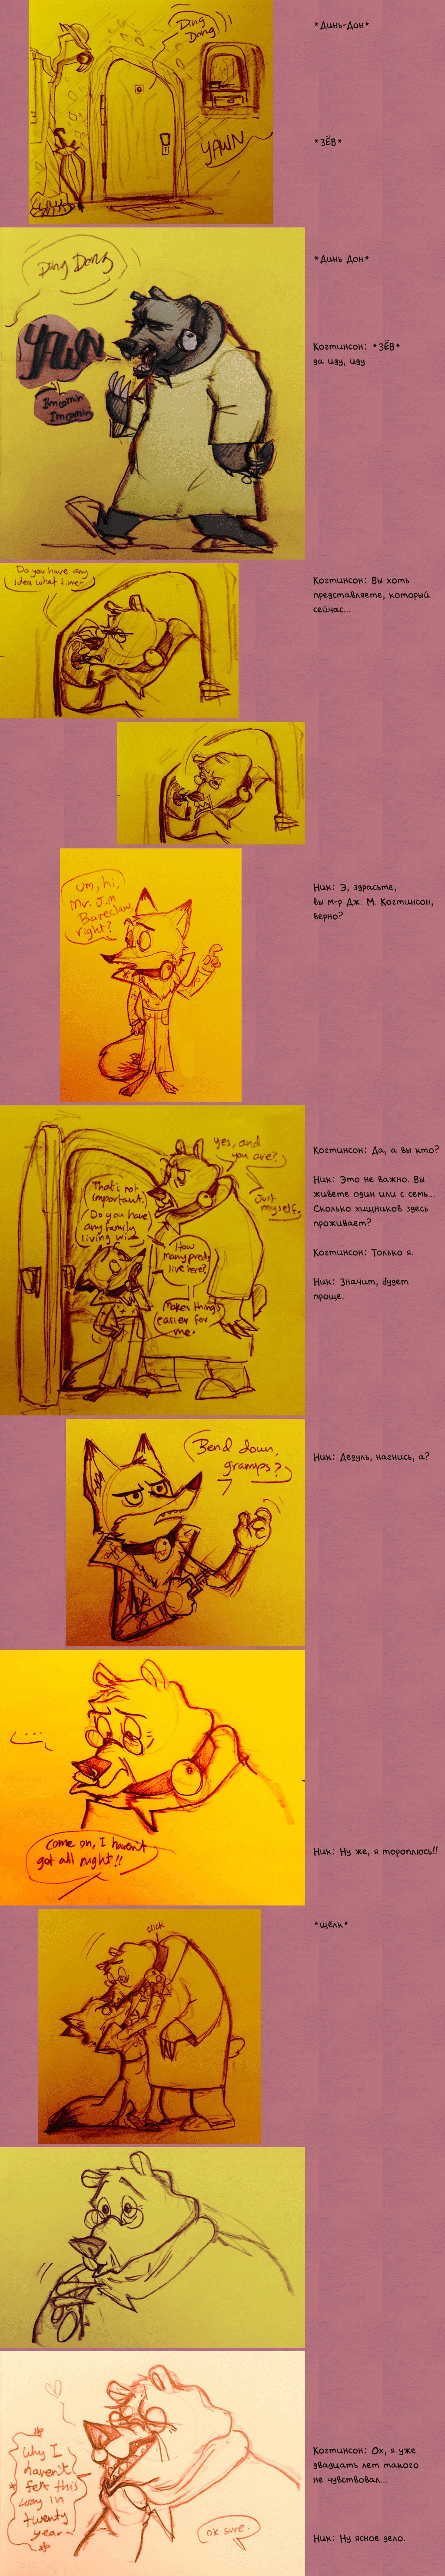 Ding
Dong!
*Динь-Дон*
YAWN
*ЗЁВ*
Ding Dong
*Динь Дон*
YAWN
I'm comin'
I'm comin'
Когтинсон: *ЗЁВ*
да иду, иду
Do you have any
idea what time-
Когтинсон: Вы хоть
представляете, который
сейчас...
Um, hi,
Mr. J.M
Bareclaw,
right?
Ник: Э, здрасьте,
вы м-р Дж. М. Когтинсон,
верно?
yes, and
you are?
That's not
important.
Do you have
any family
living wi-
Just
myself.
How
many preds
live here?
Makes things
easier for
me.
Когтинсон: Да, а вы кто?
Ник: Это не важно. Вы
живете один или с семь...
Сколько хищников здесь
проживает?
Когтинсон: Только я.
Ник: Значит, будет
проще.
Bend down,
gramps?
Ник: Дедуль, нагнись, а?
...
Come on, I haven't
got all night!!
Ник: Ну же, я тороплюсь!!
click
*щёлк*
Why I
haven't
felt this
way in
twenty
year-
ok sure.
Когтинсон: Ох, я уже
двадцать лет такого
не чувствовал...
Ник: Ну ясное дело.